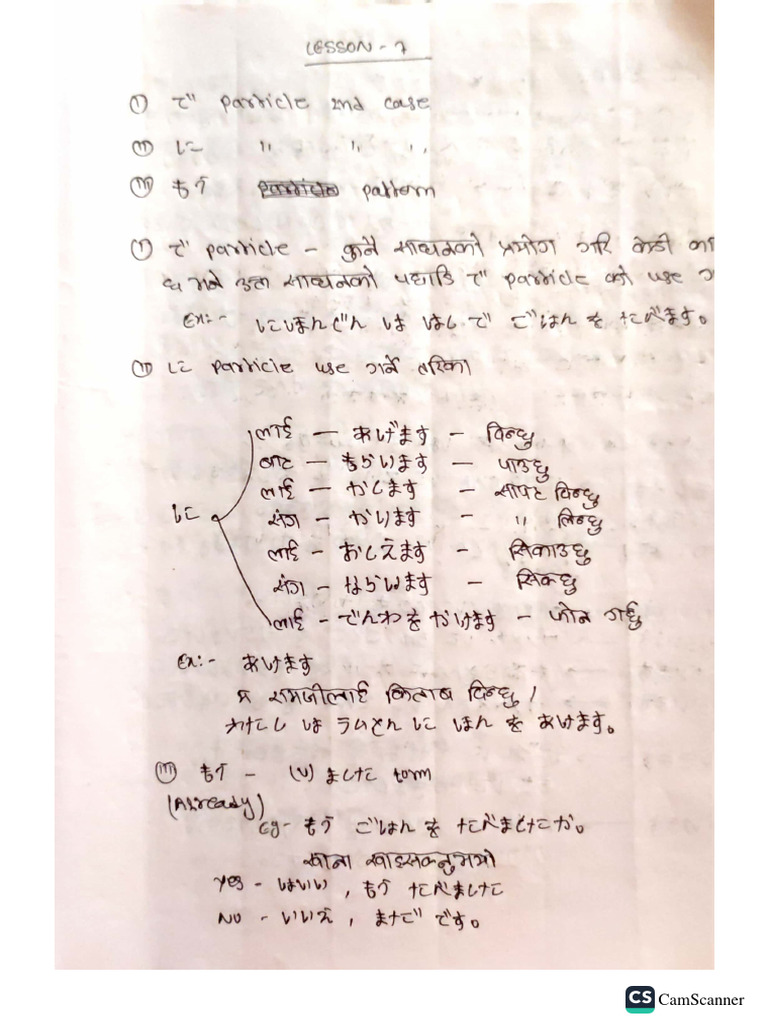 LESSON - 7
① で particle 2nd case
② に " " "
③ もう pattern
① で particle - कुनै साधनको प्रयोग गरि केही
छ भने उक्त साधनको पछाडि で particle को use
Ex:- にほんじん は はし で ごはん を たべます。
② に particle use गर्ने तरिका
लाई — あげます - दिन्छु
बाट — もらいます — पाउछु
लाई — かします — सापट दिन्छु
に संग — かります - " लिन्छु
लाई - おしえます - सिकाउछु
संग - ならいます - सिक्छु
लाई - でんわ を かけます - फोन गर्छु
Ex:- あげます
म रामजीलाई किताब दिन्छु ।
わたし は ラムさん に ほん を あげます。
③ もう - (V) ました form
(Already)
eg- もう ごはん を たべましたか。
खाना खाइसक्नुभयो
Yes - はい , もう たべました
NO - いいえ , まだ です。
CS CamScanner